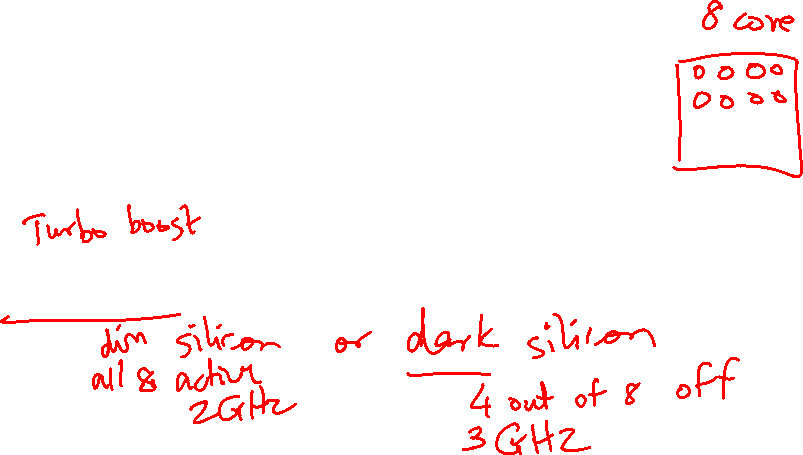 8 core
Turbo boost
dim silicon or dark silicon
all 8 active
2GHz
4 out of 8 off
3GHz